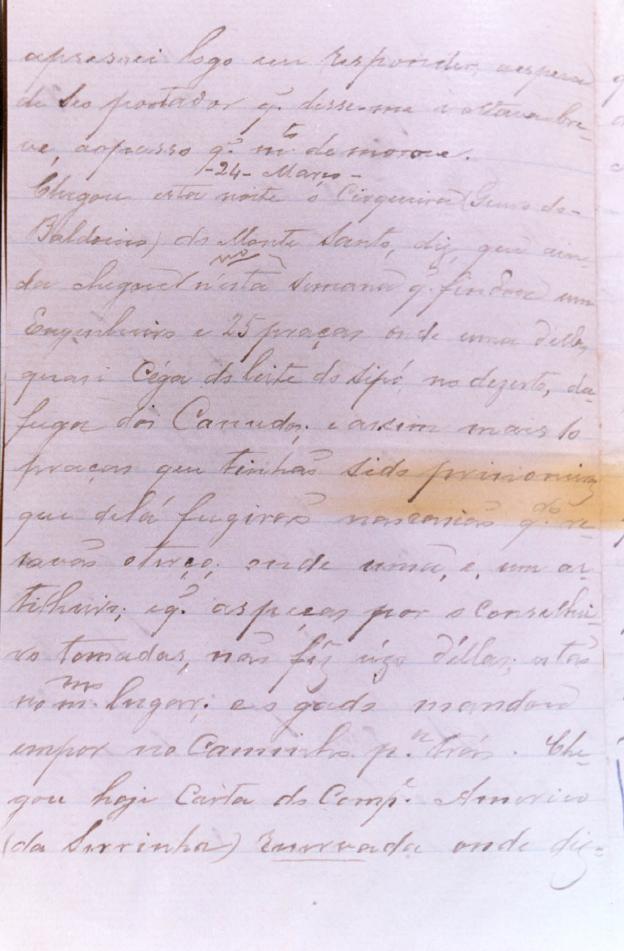 apressei logo em responder, a espera
de seo portador q.' disse-me voltava bre-
ve, ao passo q.' m.to demorou.
-24- Março-
Chegou esta noite o Cirqueira (Genro do-
Baldoino) do Monte Santo, diz, que ain-
da chegou nesta semana q.' findou um
Engenheiro e 25 praças onde uma dellas
quasi céga do leite do sipó, no dezerto, da
fuga dos Canudos; e assim mais 10
praças que tinhão sido prisioneiras
que delá fugirão q.do re-
savão o terço; onde uma, é, um ar-
tilheiro; e q.' as peças por o Conselhei-
ro tomadas, não fêz uzo déllas, estão
no m.mo lugar; e o gado mandou
empor no Caminho p.a trás. Che-
gou hoje Carta do Comp.e Americo
(da Serrinha) Rezervada onde diz=